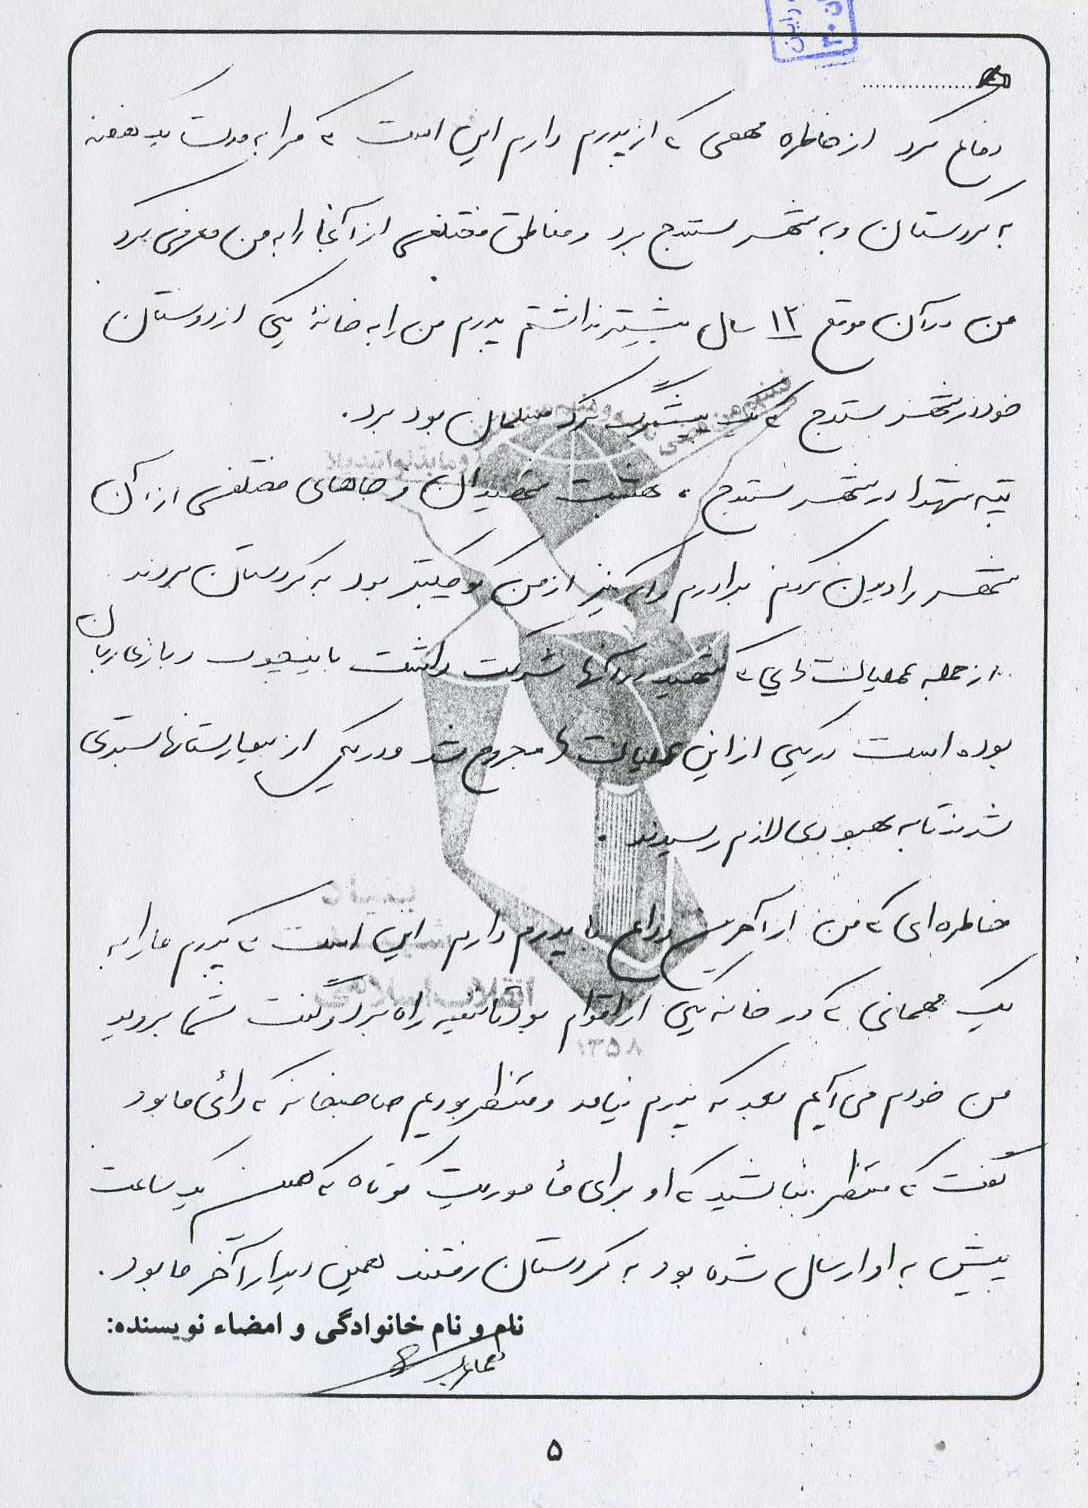 دفاع کرد از خاطره مهمی که از پدرم دارم این است که مرا به مدت یک هفته
به کردستان و به شهر سنندج برد و مناطق مختلفی از آنجا را به من معرفی کرد
من در آن موقع ۱۲ سال بیشتر نداشتم پدرم من را به خانهٔ یکی از دوستان
خود در شهر سنندج که یک پیشمرگ کرد مسلمان بود برد.
تپه شهدا در شهر سنندج ، بهشت شهیدان و جاهای مختلفی از آن
شهر را دیدن کردم برادرم را که نیز از من کوچکتر بود به کردستان بردند
از جمله عملیات هایی که شهید در آنها شرکت داشت و بازی دربان
بوده است در یکی از این عملیات ها مجروح شد و در یکی از بیمارستانها بستری
شدند تا به بهبودی لازم رسیدند .
خاطره ای که من از آخرین وداع با پدرم دارم این است که پدرم ما را به
یک مهمانی که در خانه یکی از اقوام بود راه برد و گفت شما بروید
من خودم می آیم بعد که پدرم نیامد و منتظر بودیم صاحبخانه که دائی ما بود
گفت که منتظر نباشید که او برای مأموریت کوتاه که همین یک ساعت
پیش به او ارسال شده بود به کردستان رفتند همین دیدار آخر ما بود .
نام و نام خانوادگی و امضاء نویسنده:
۱۳۵۸
۵